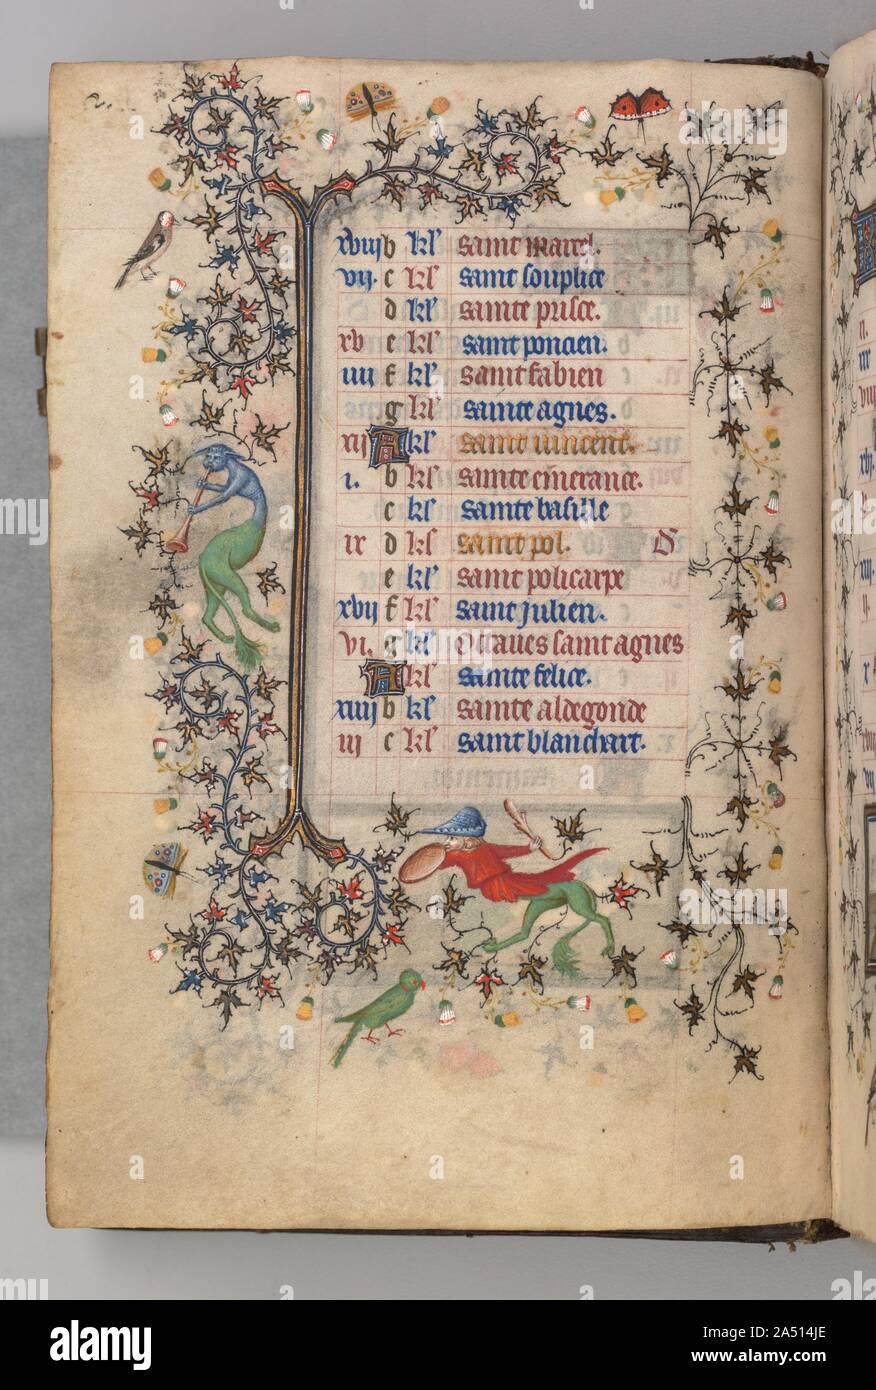 xviij b kl' saint marcel.
vij. c kl' saint souplice
d kl' sainte prisce.
xv e kl' saint poncien.
iiij f kl' saint fabien
g kl' sainte agnes.
xij A kl' saint vincent.
i. b kl' sainte emerance.
c kl' sainte basille
ix d kl' saint pol. D
e kl' saint policarpe
xvij f kl' saint julien.
vi. g kl' Octaves saint agnes
A kl' sainte felice.
xiiij b kl' sainte aldegonde
iij c kl' saint blanchart.
alamy
Image ID: 2A514JE
www.alamy.com